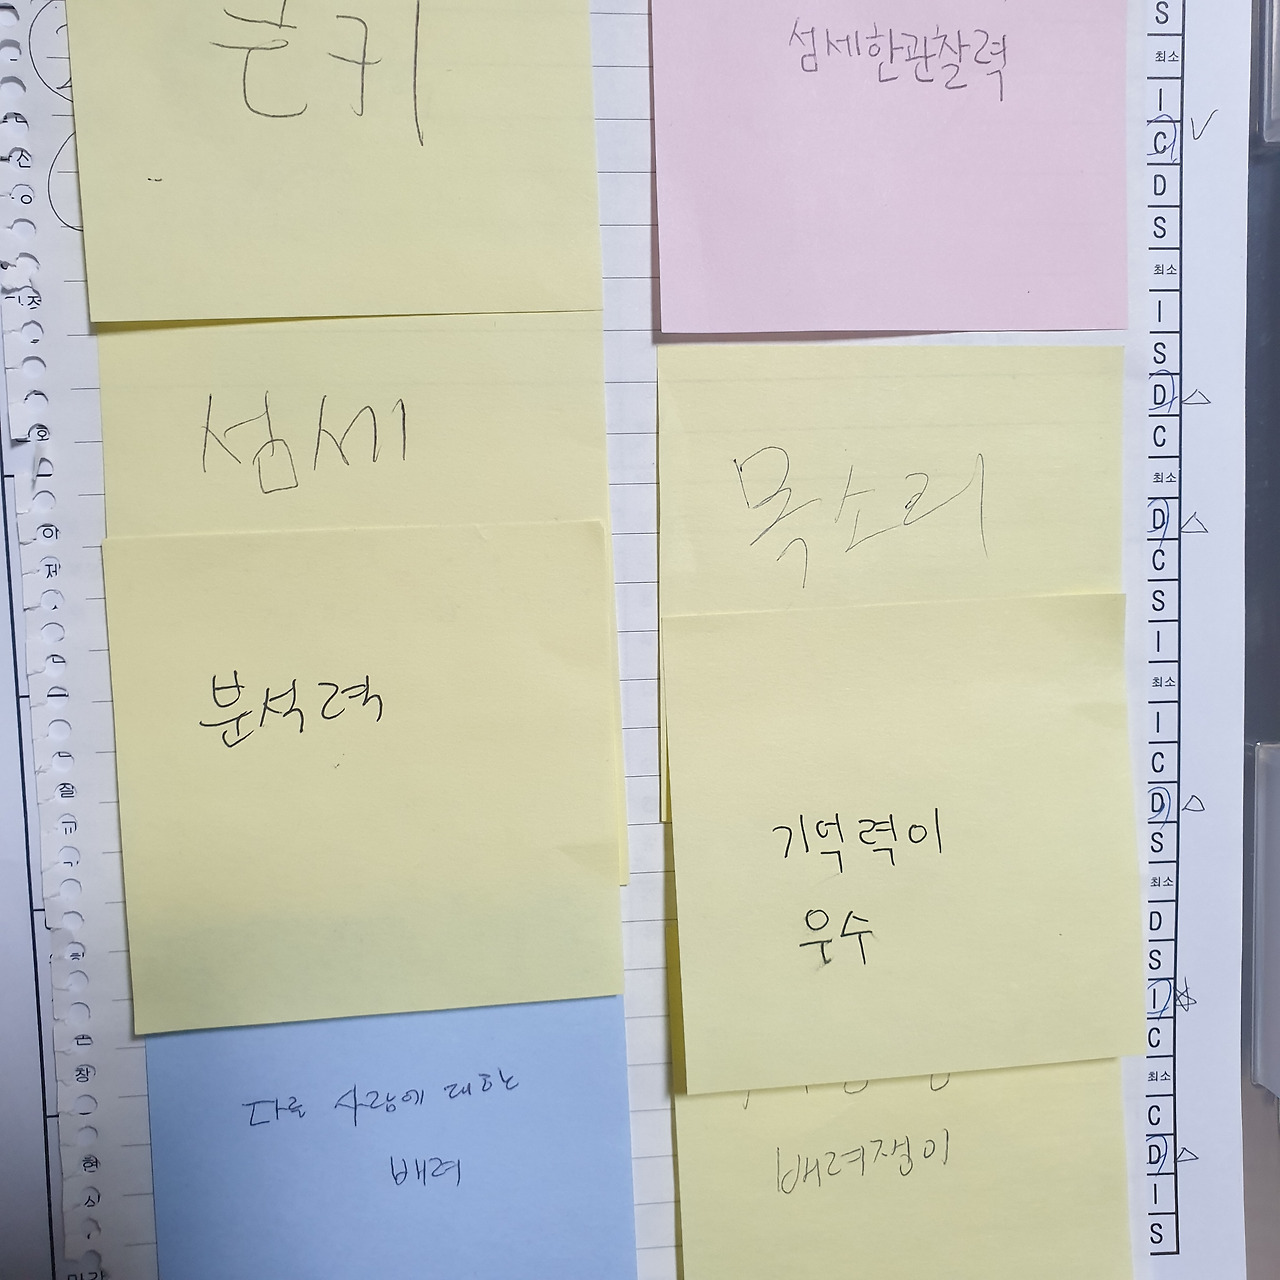 끈기
섬세한관찰력
섬세
목소리
분석력
기억력이
우수
다른 사람에 대한
배려
배려쟁이
S
최소
I
C
D
S
최소
I
S
D
C
최소
D
C
S
I
최소
I
C
D
S
최소
D
S
I
C
최소
C
D
I
S